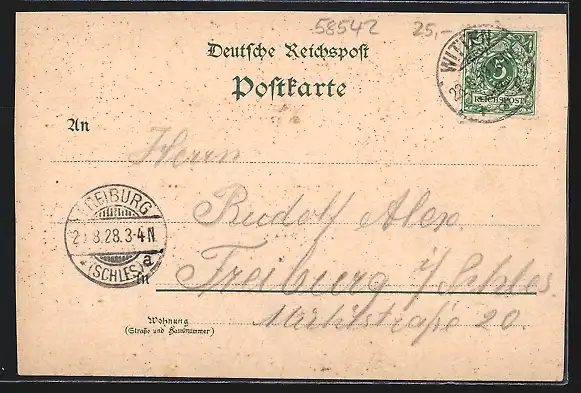 58542 25,-
Deutsche Reichspost
Postkarte
5
REICHSPOST
An
Herrn
Rudolf Alex
FREIBURG
8.28.3-4N
(SCHLES) a
in
Freiburg i/Schles
Wohnung
(Straße und Hausnummer)
straße 20